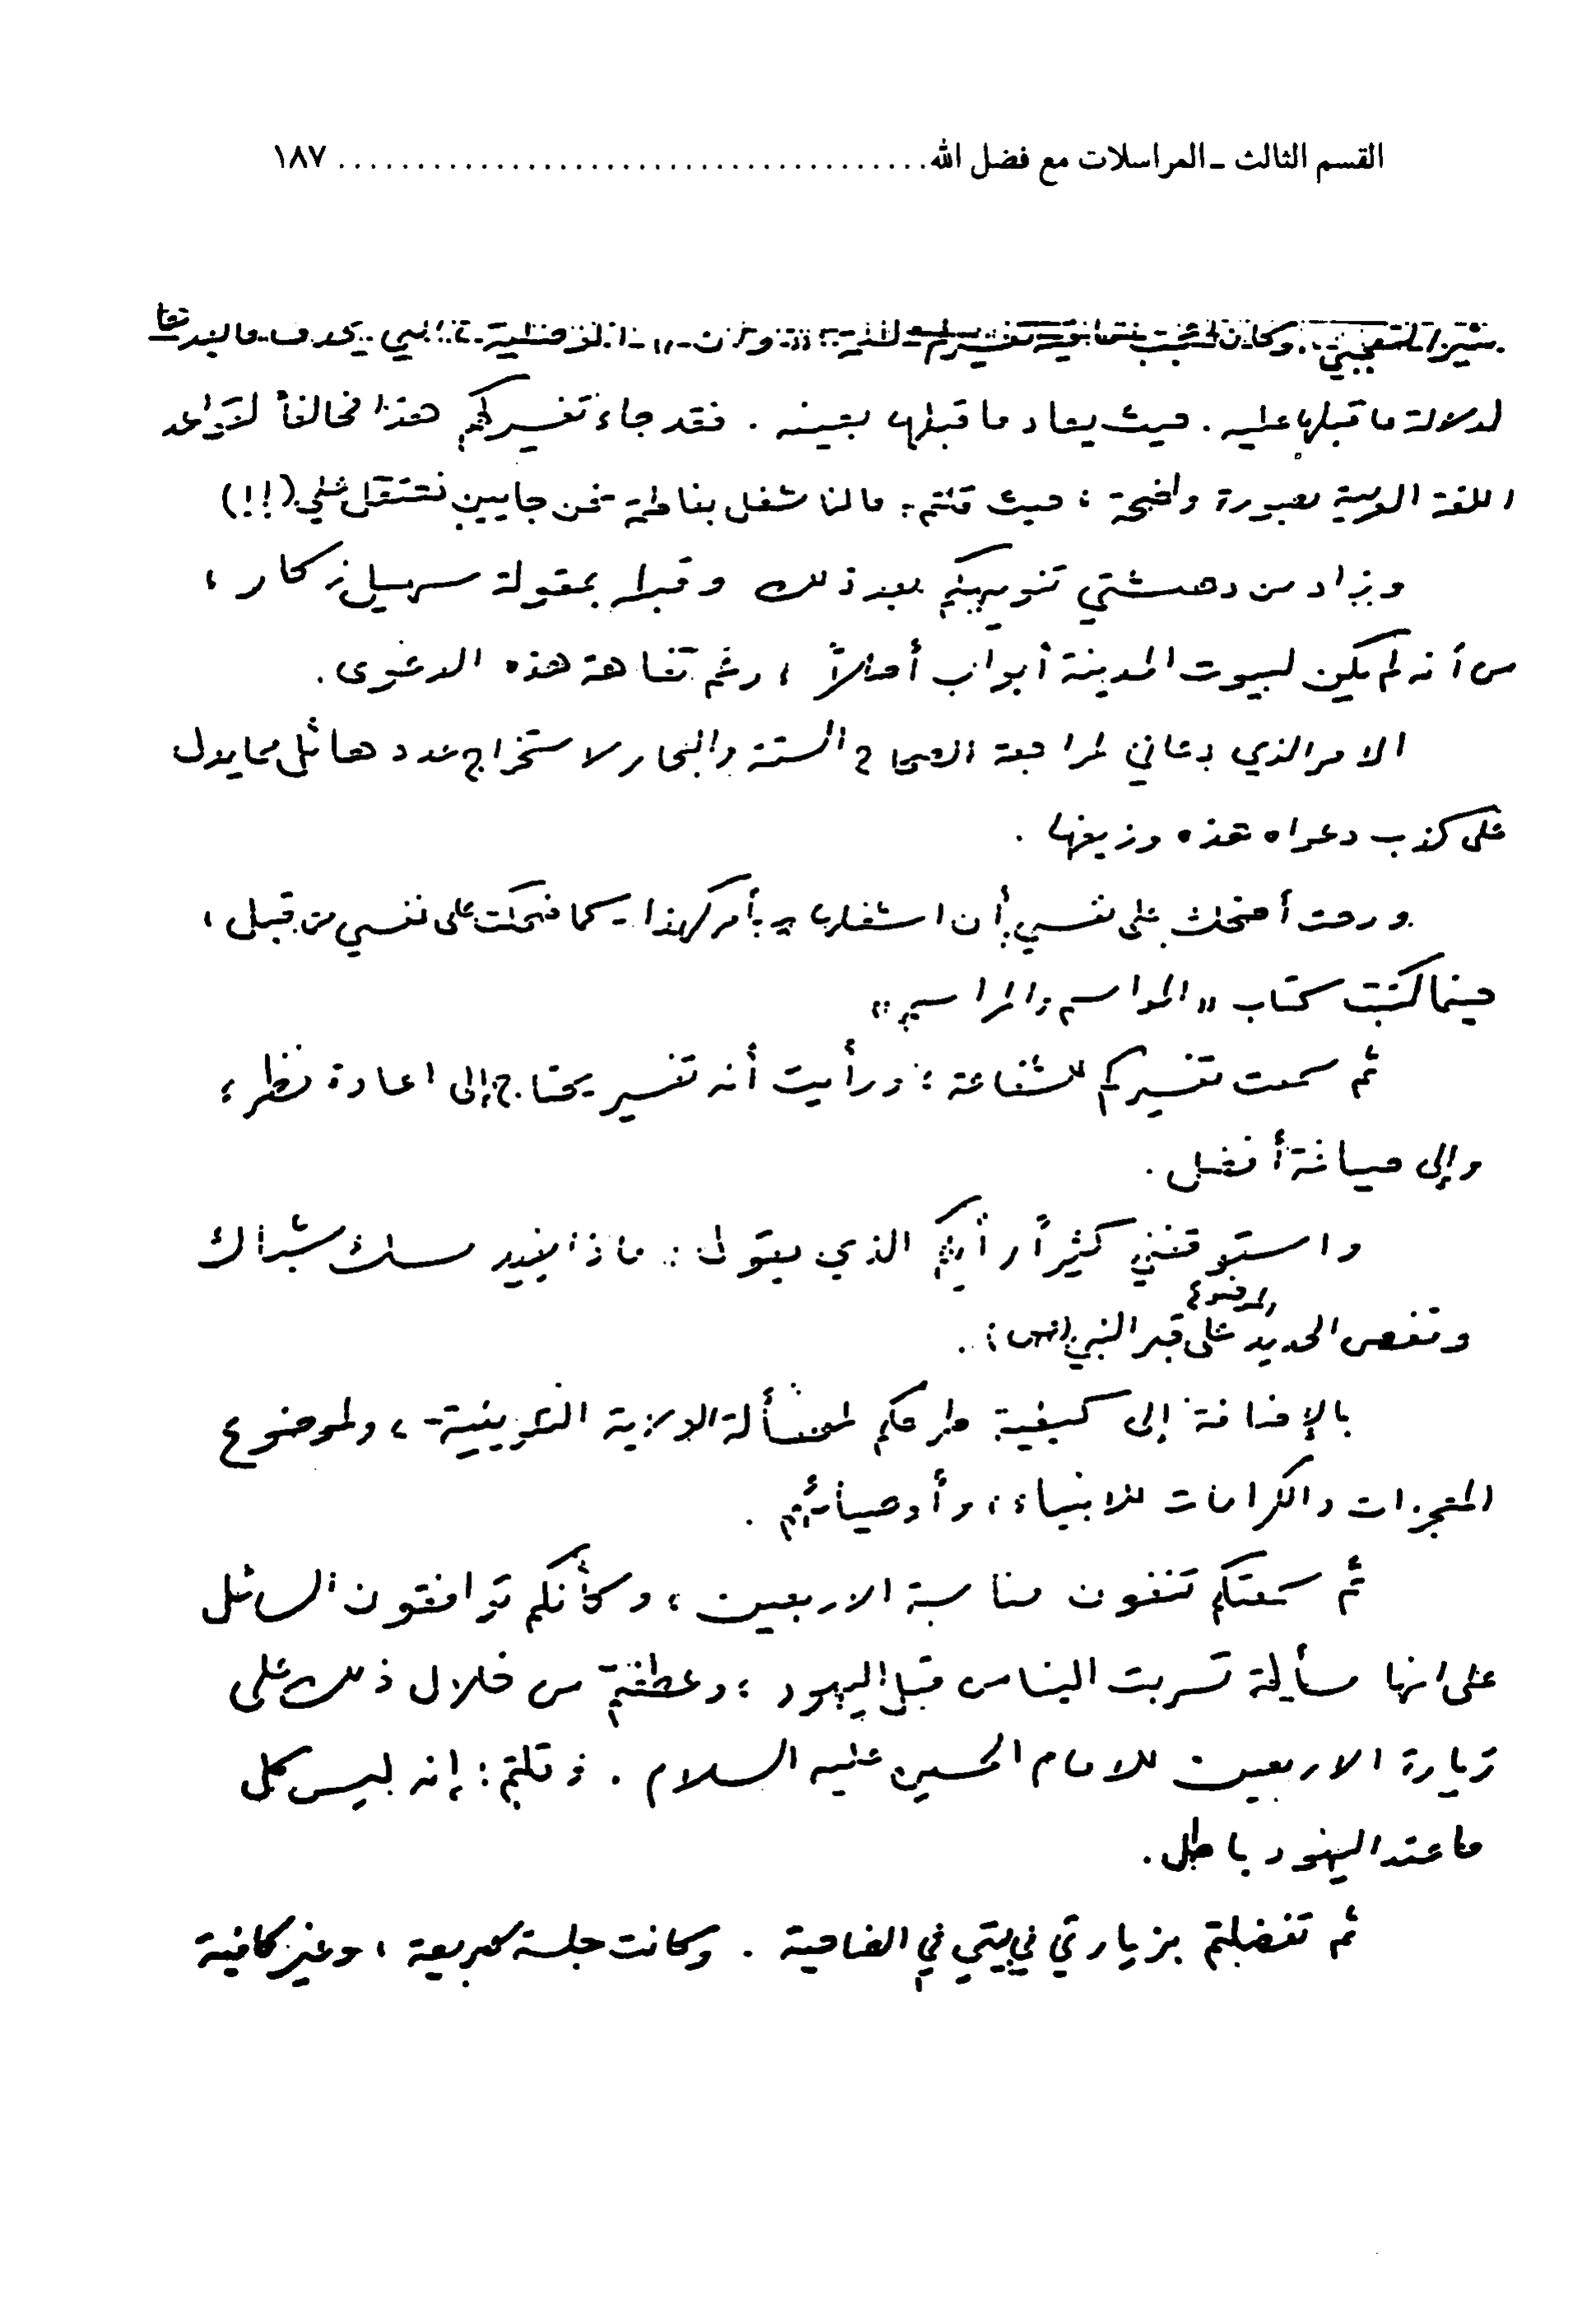 القسم الثالث ـ المراسلات مع فضل الله ..................................... ١٨٧
يحذف ما بعدها
لدلالة ما قبلها عليه . حيث يعاد ما قبلها بعينه . فقد جاء تفسيركم هذا مخالفاً لقواعد
اللغة العربية بصورة واضحة ، حيث قلتم : مالنا شغل بفاطمة نحن جايين نعتقل علي (!!)
وزاد من دهشتي تنويهكم بعد ذلك وقبله بمقولة سهيل زكار ،
من أنه لم يكن لبيوت المدينة أبواب أصلاً ، رغم تفاهة هذه الدعوى .
الامر الذي دعاني لمراجعة الصحاح الستة والبحار لاستخراج عدد هائل مما يدل
على كذب دعواه هذه وزيفها .
ورحت أضحك على نفسي أن اشغلها بأمر كهذا ـ كما ضحكت على نفسي من قبل ،
حينما كتبت كتاب «المواسم والمراسم»
ثم سمعت تفسيركم للشفاعة ، ورأيت أنه تفسير يحتاج إلى اعادة نظر ،
وإلى صياغة أفضل .
واستوقفني كثيراً رأيكم الذي يقول : ماذا يفيد مسك شباك
وقفص الحديد الموضوع على قبر النبي (ص) .
بالإضافة إلى كيفية طرحكم لمسألة الولاية التكوينية ، ولموضوع
المعجزات والكرامات للانبياء ، وأوصيائهم .
ثم سمعتكم تنفون مناسبة الاربعين ، وكأنكم توافقون السائل
على انها مسألة تسربت الينا من قبل اليهود ، وعطفتم من خلال ذلك على
زيارة الاربعين للامام الحسين عليه السلام . وقلتم : إنه ليس كل
ما عند اليهود باطل .
ثم تفضلتم بزيارتي في بيتي في الضاحية . وكانت جلسة سريعة ، وغير كافية